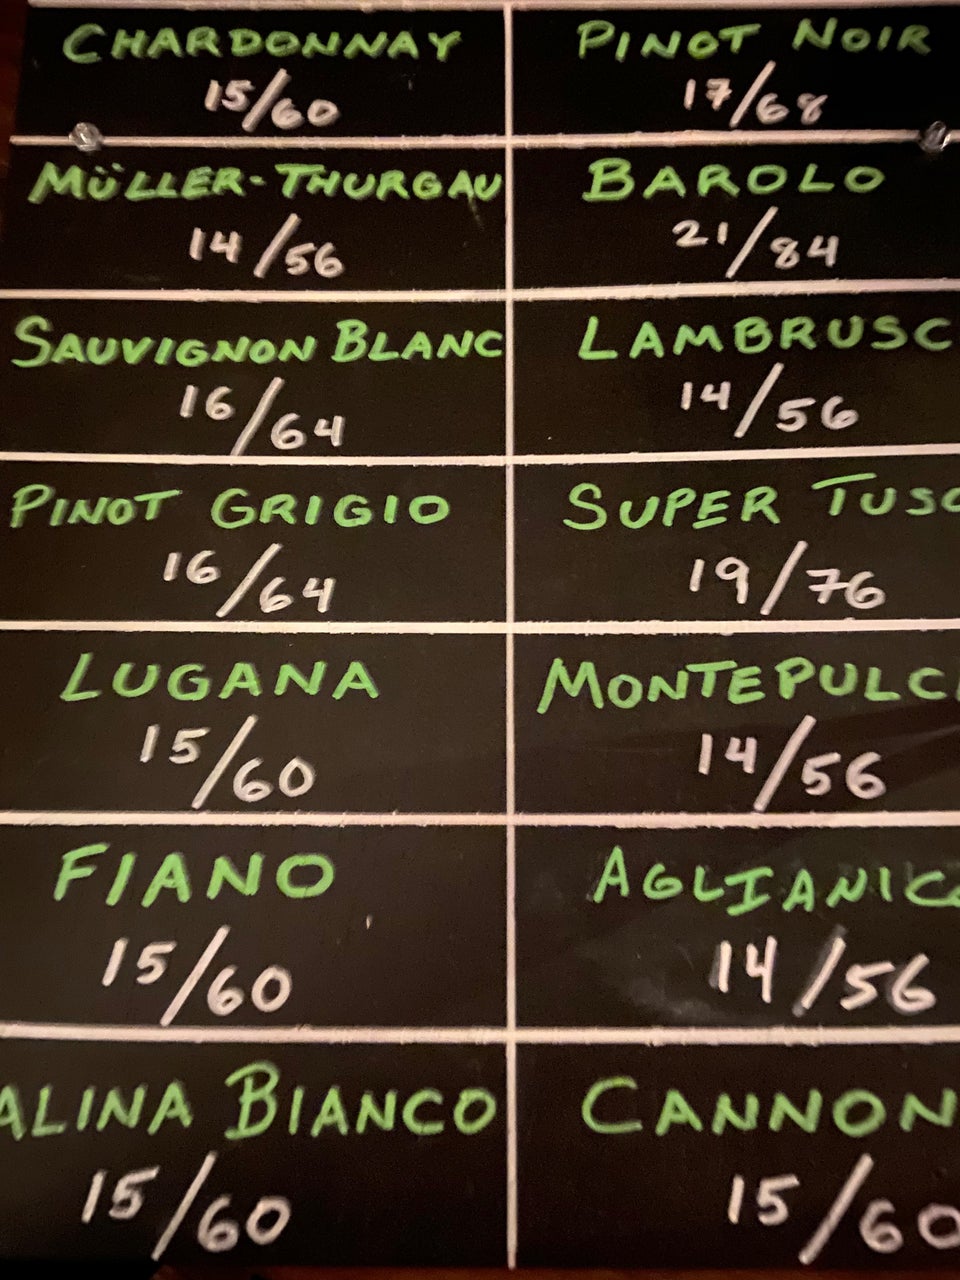 CHARDONNAY
15/60
PINOT NOIR
17/68
MÜLLER-THURGAU
14/56
BAROLO
21/84
SAUVIGNON BLANC
16/64
LAMBRUSC
14/56
PINOT GRIGIO
16/64
SUPER TUSC
19/76
LUGANA
15/60
MONTEPULC
14/56
FIANO
15/60
AGLIANIC
14/56
ALINA BIANCO
15/60
CANNON
15/60